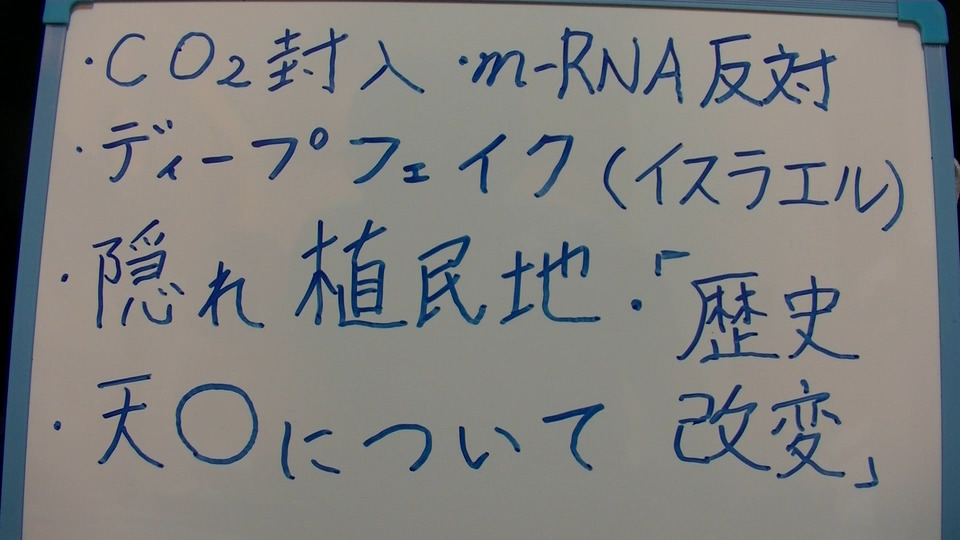 ・CO₂封入 ・m-RNA反対
・ディープフェイク(イスラエル)
・隠れ植民地・「歴史
改変」
・天〇について